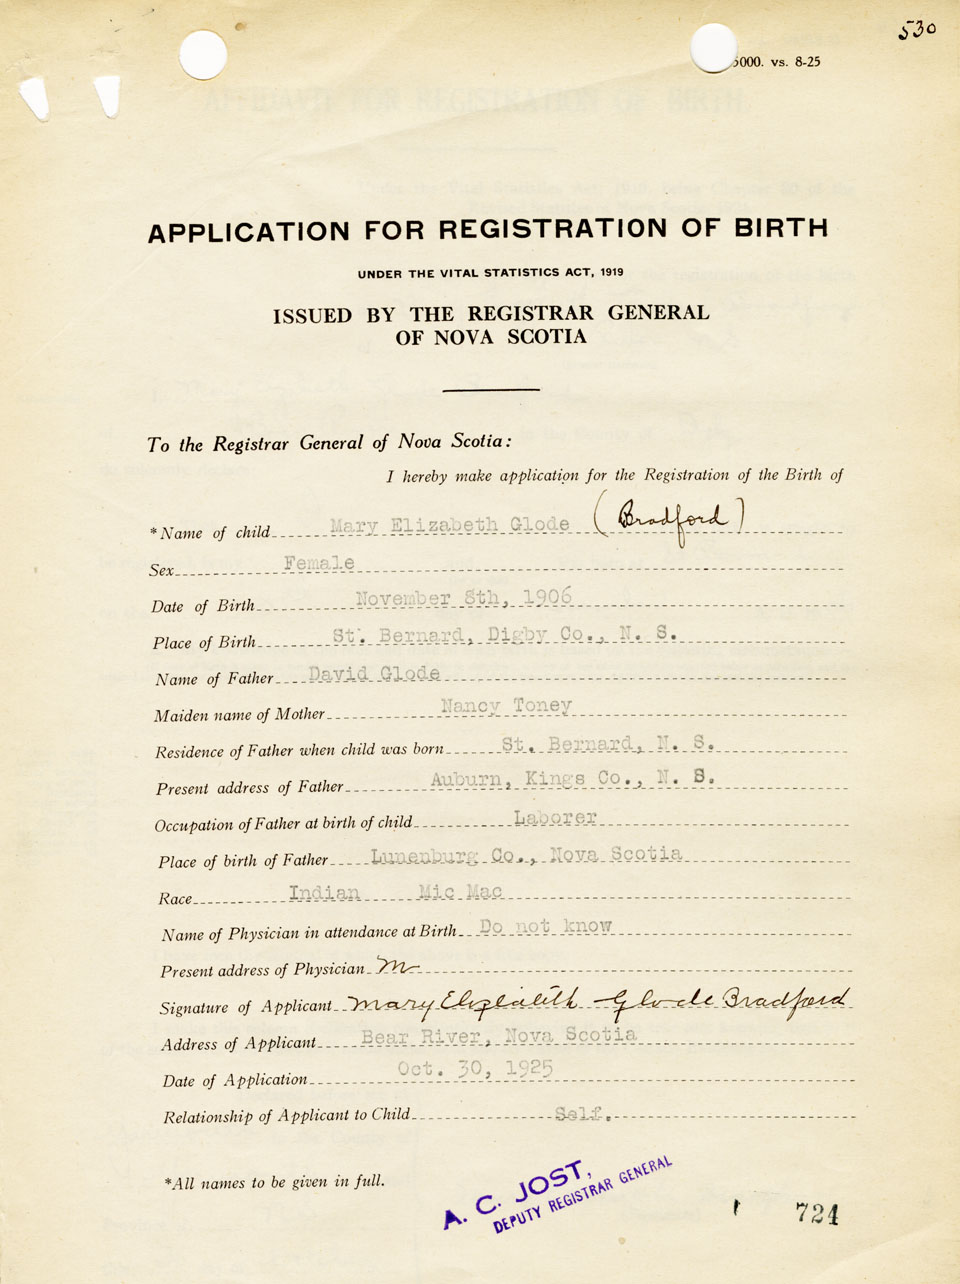 530
5000. vs. 8-25
APPLICATION FOR REGISTRATION OF BIRTH
UNDER THE VITAL STATISTICS ACT, 1919
ISSUED BY THE REGISTRAR GENERAL
OF NOVA SCOTIA
To the Registrar General of Nova Scotia:
I hereby make application for the Registration of the Birth of
*Name of child Mary Elizabeth Glode (Bradford)
Sex Female
Date of Birth November 8th, 1906
Place of Birth St. Bernard, Digby Co., N. S.
Name of Father David Glode
Maiden name of Mother Nancy Toney
Residence of Father when child was born St. Bernard, N. S.
Present address of Father Auburn, Kings Co., N. S.
Occupation of Father at birth of child Laborer
Place of birth of Father Lunenburg Co., Nova Scotia
Race Indian Mic Mac
Name of Physician in attendance at Birth Do not know
Present address of Physician M
Signature of Applicant Mary Elizeabith Glode Bradford
Address of Applicant Bear River, Nova Scotia
Date of Application Oct. 30, 1925
Relationship of Applicant to Child Self.
*All names to be given in full.
A. C. JOST,
DEPUTY REGISTRAR GENERAL
724